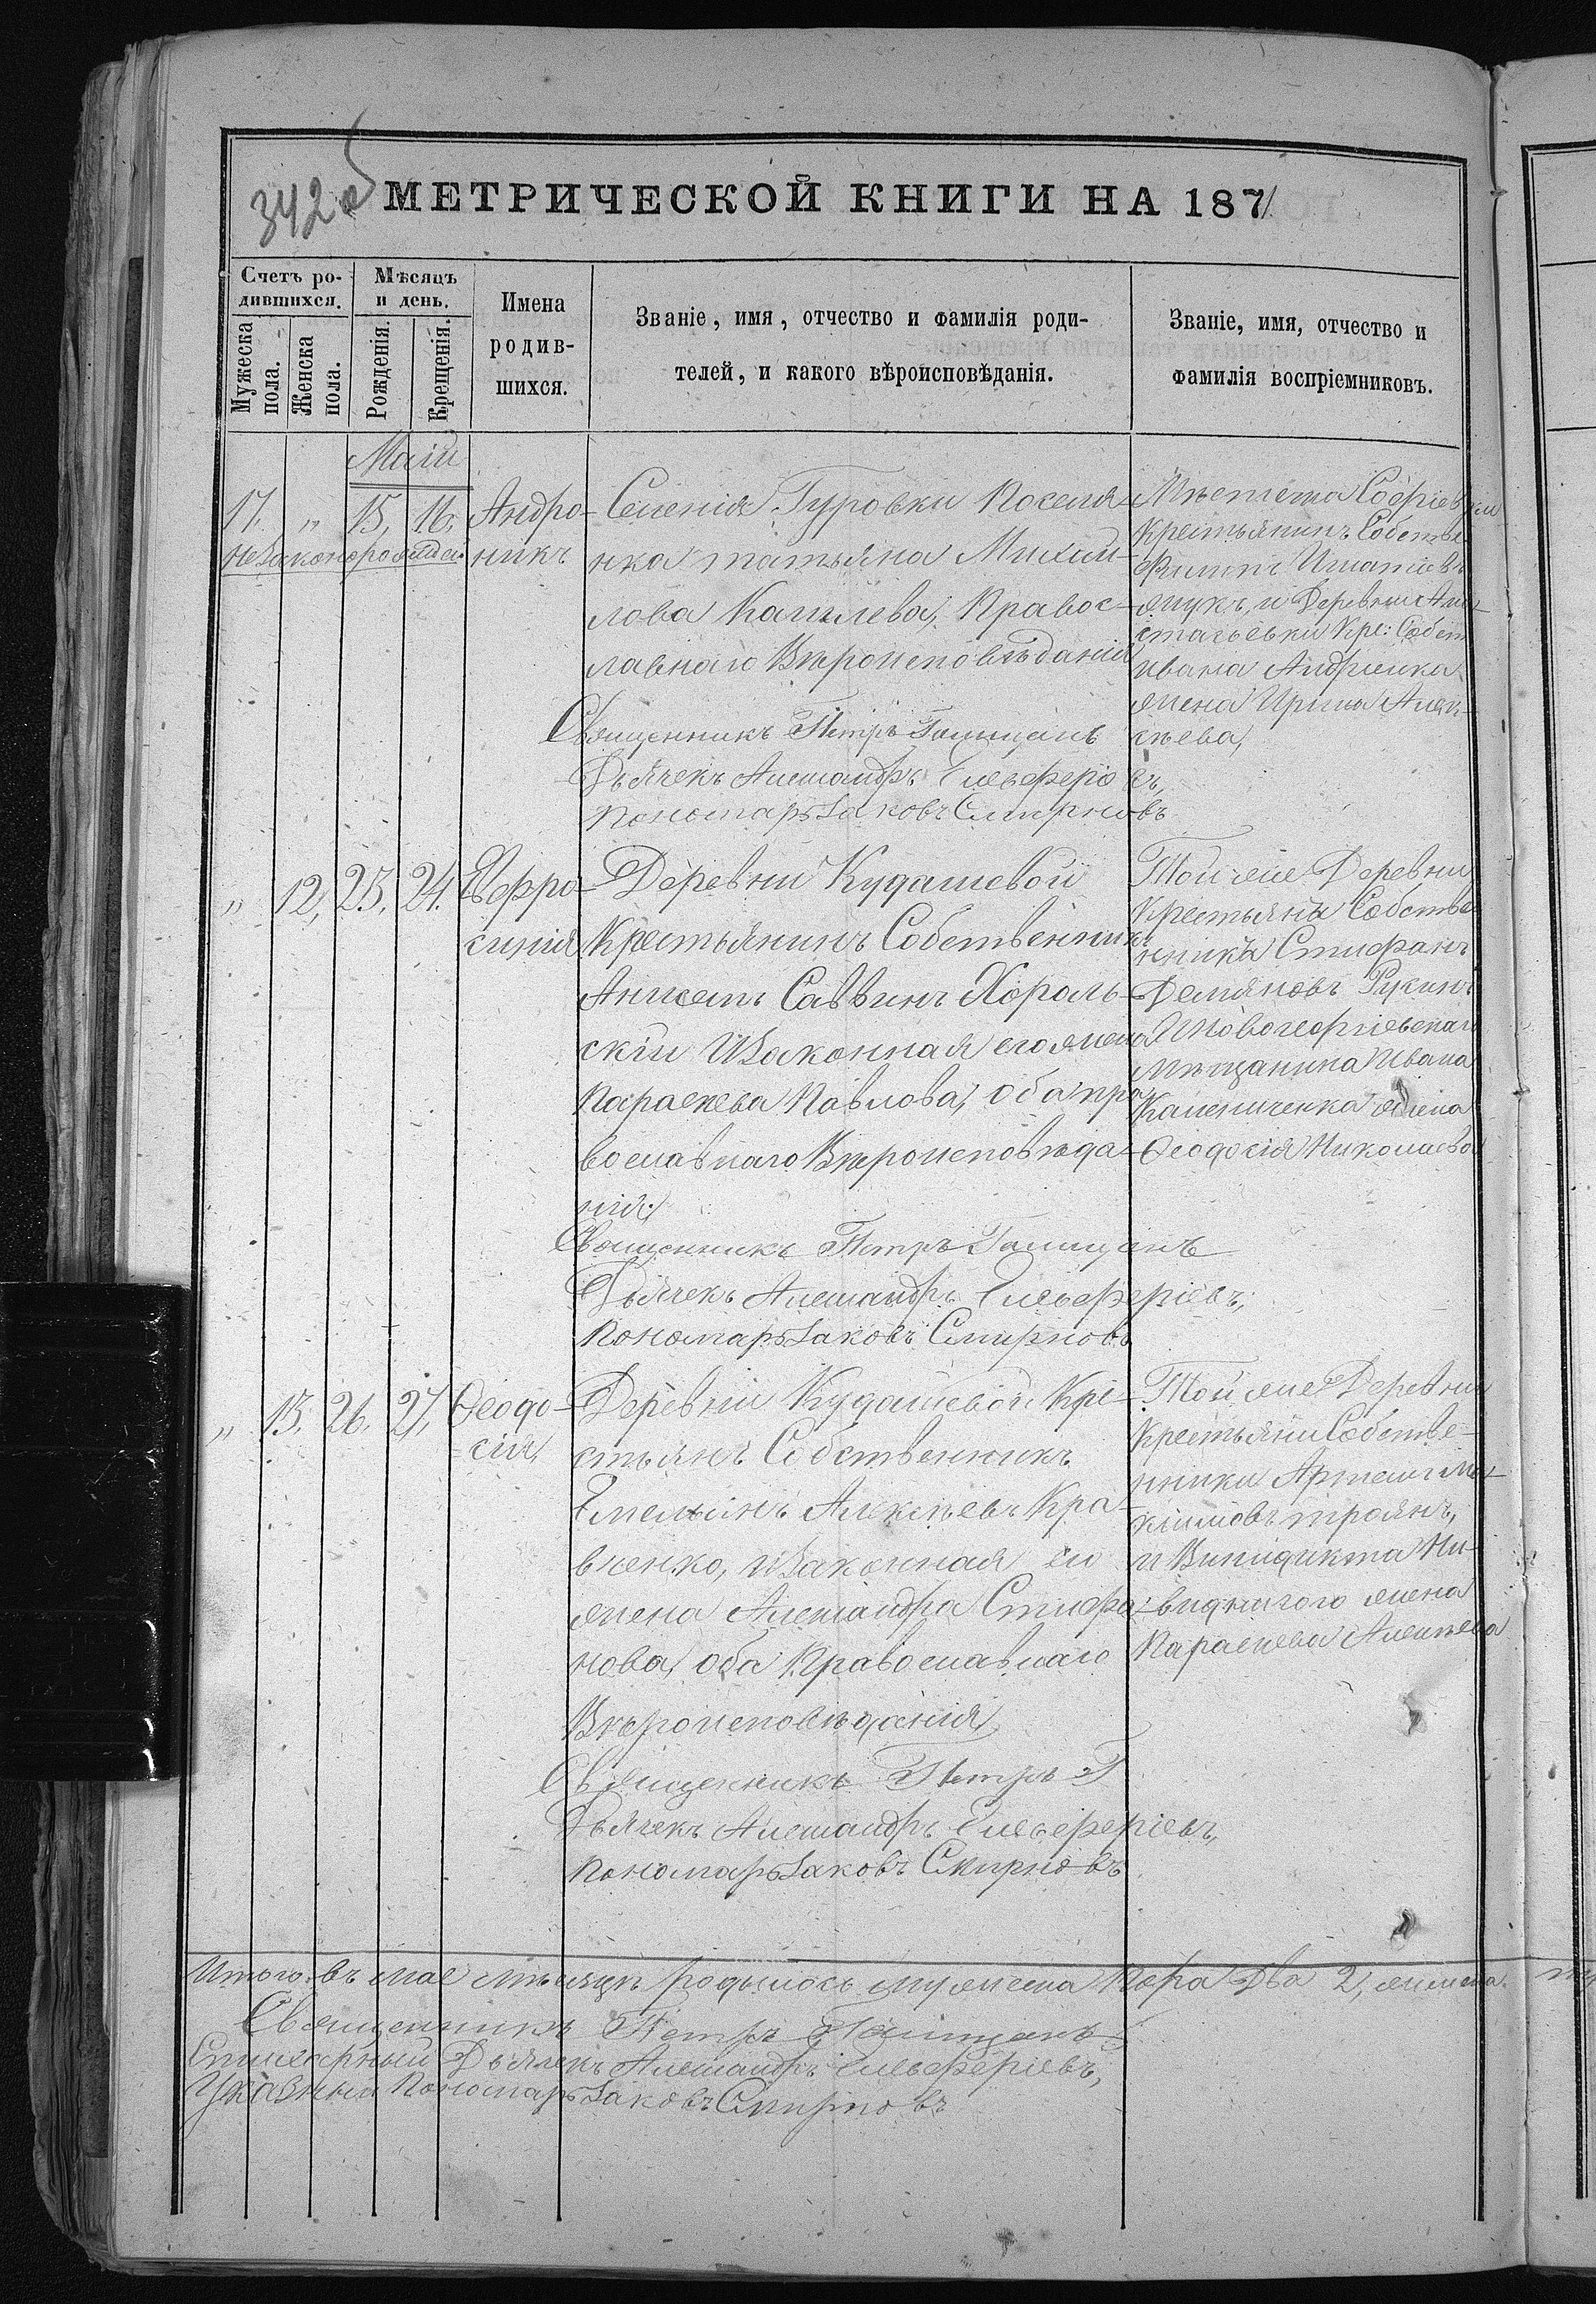 342 об
МЕТРИЧЕСКОЙ КНИГИ НА 1871
Счетъ ро-
дившихся.
Мужеска
пола.
Женска
пола.
Мѣсяцъ
и день.
Рожденія.
Крещенія.
Имена
родив-
шихся.
Званіе, имя, отчество и фамилія роди-
телей, и какого вѣроисповѣданія.
Званіе, имя, отчество и
фамилія воспріемниковъ.
Маій
17. " 15. 16.
незаконорожден.
Андро-
никъ
Селенія Гуровки Поселя-
нка татьяна Михай-
лова Правос-
лавнаго Вѣроисповѣданія
Священникъ Петръ
Дьячекъ Александръ Елевферіевъ,
Пономарь Іаковъ Смирновъ
Мѣстечка
Крестьянинъ Собствен
Филипп Игнатіевъ
и Деревни
Кре: Собств
Ивана Андриенка
жена Ирина Алек-
сѣева,
" 12, 23, 24.
Евфро-
синія
Деревни Кудашевой
Крестьянинъ Собственникъ
Саввинъ Хороль-
скій и Законная его жена
Параскева Павлова, оба пра-
вославнаго Вѣроисповѣда-
нія,
Священникъ Петръ
Дьячекъ Александръ Елевферіевъ,
Пономарь Іаковъ Смирновъ
Той же Деревни
Крестьяна Собстве
нника Стифанъ
Демяновъ
и Новогеоргіевскаго
Мѣщанина Ивана
жена
Ѳеодосія Николаева
" 13. 26. 27.
Ѳеодо-
сія,
Деревни Кудашевой Кре-
стьянъ Собственникъ
Емельянъ Алексѣевъ Кра-
вченко, и Законная его
жена Александра Стифа-
нова, оба Православнаго
Вѣроисповѣданія,
Священникъ Петръ Г
Дьячекъ Александръ Елевферіевъ,
Пономарь Іаковъ Смирновъ
Той же Деревни
Крестьяни Собстве-
нники Артемъ Ма-
ксимовъ троянъ,
и Винидикта Ни-
видничого жена
Параскева Алексѣева
Итого въ мае мѣсяцѣ родилось мужеска Пола Два 2, женска
Священникъ Петръ
Стихарный Дьячекъ Александръ Елевферіевъ,
Указный Пономарь Іаковъ Смирновъ